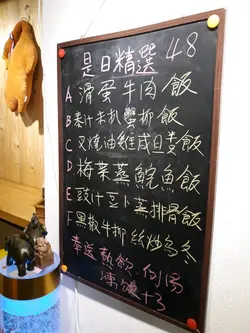 是日精選 48
A 滑蛋牛肉飯
B 汁扒蟹柳飯
C 叉燒油雞咸旦飯
D 梅菜蒸鯇魚飯
E 豉汁豆卜蒸排骨飯
F 黑椒牛柳絲炒烏冬
奉送熱飲, 例湯
凍飲+3